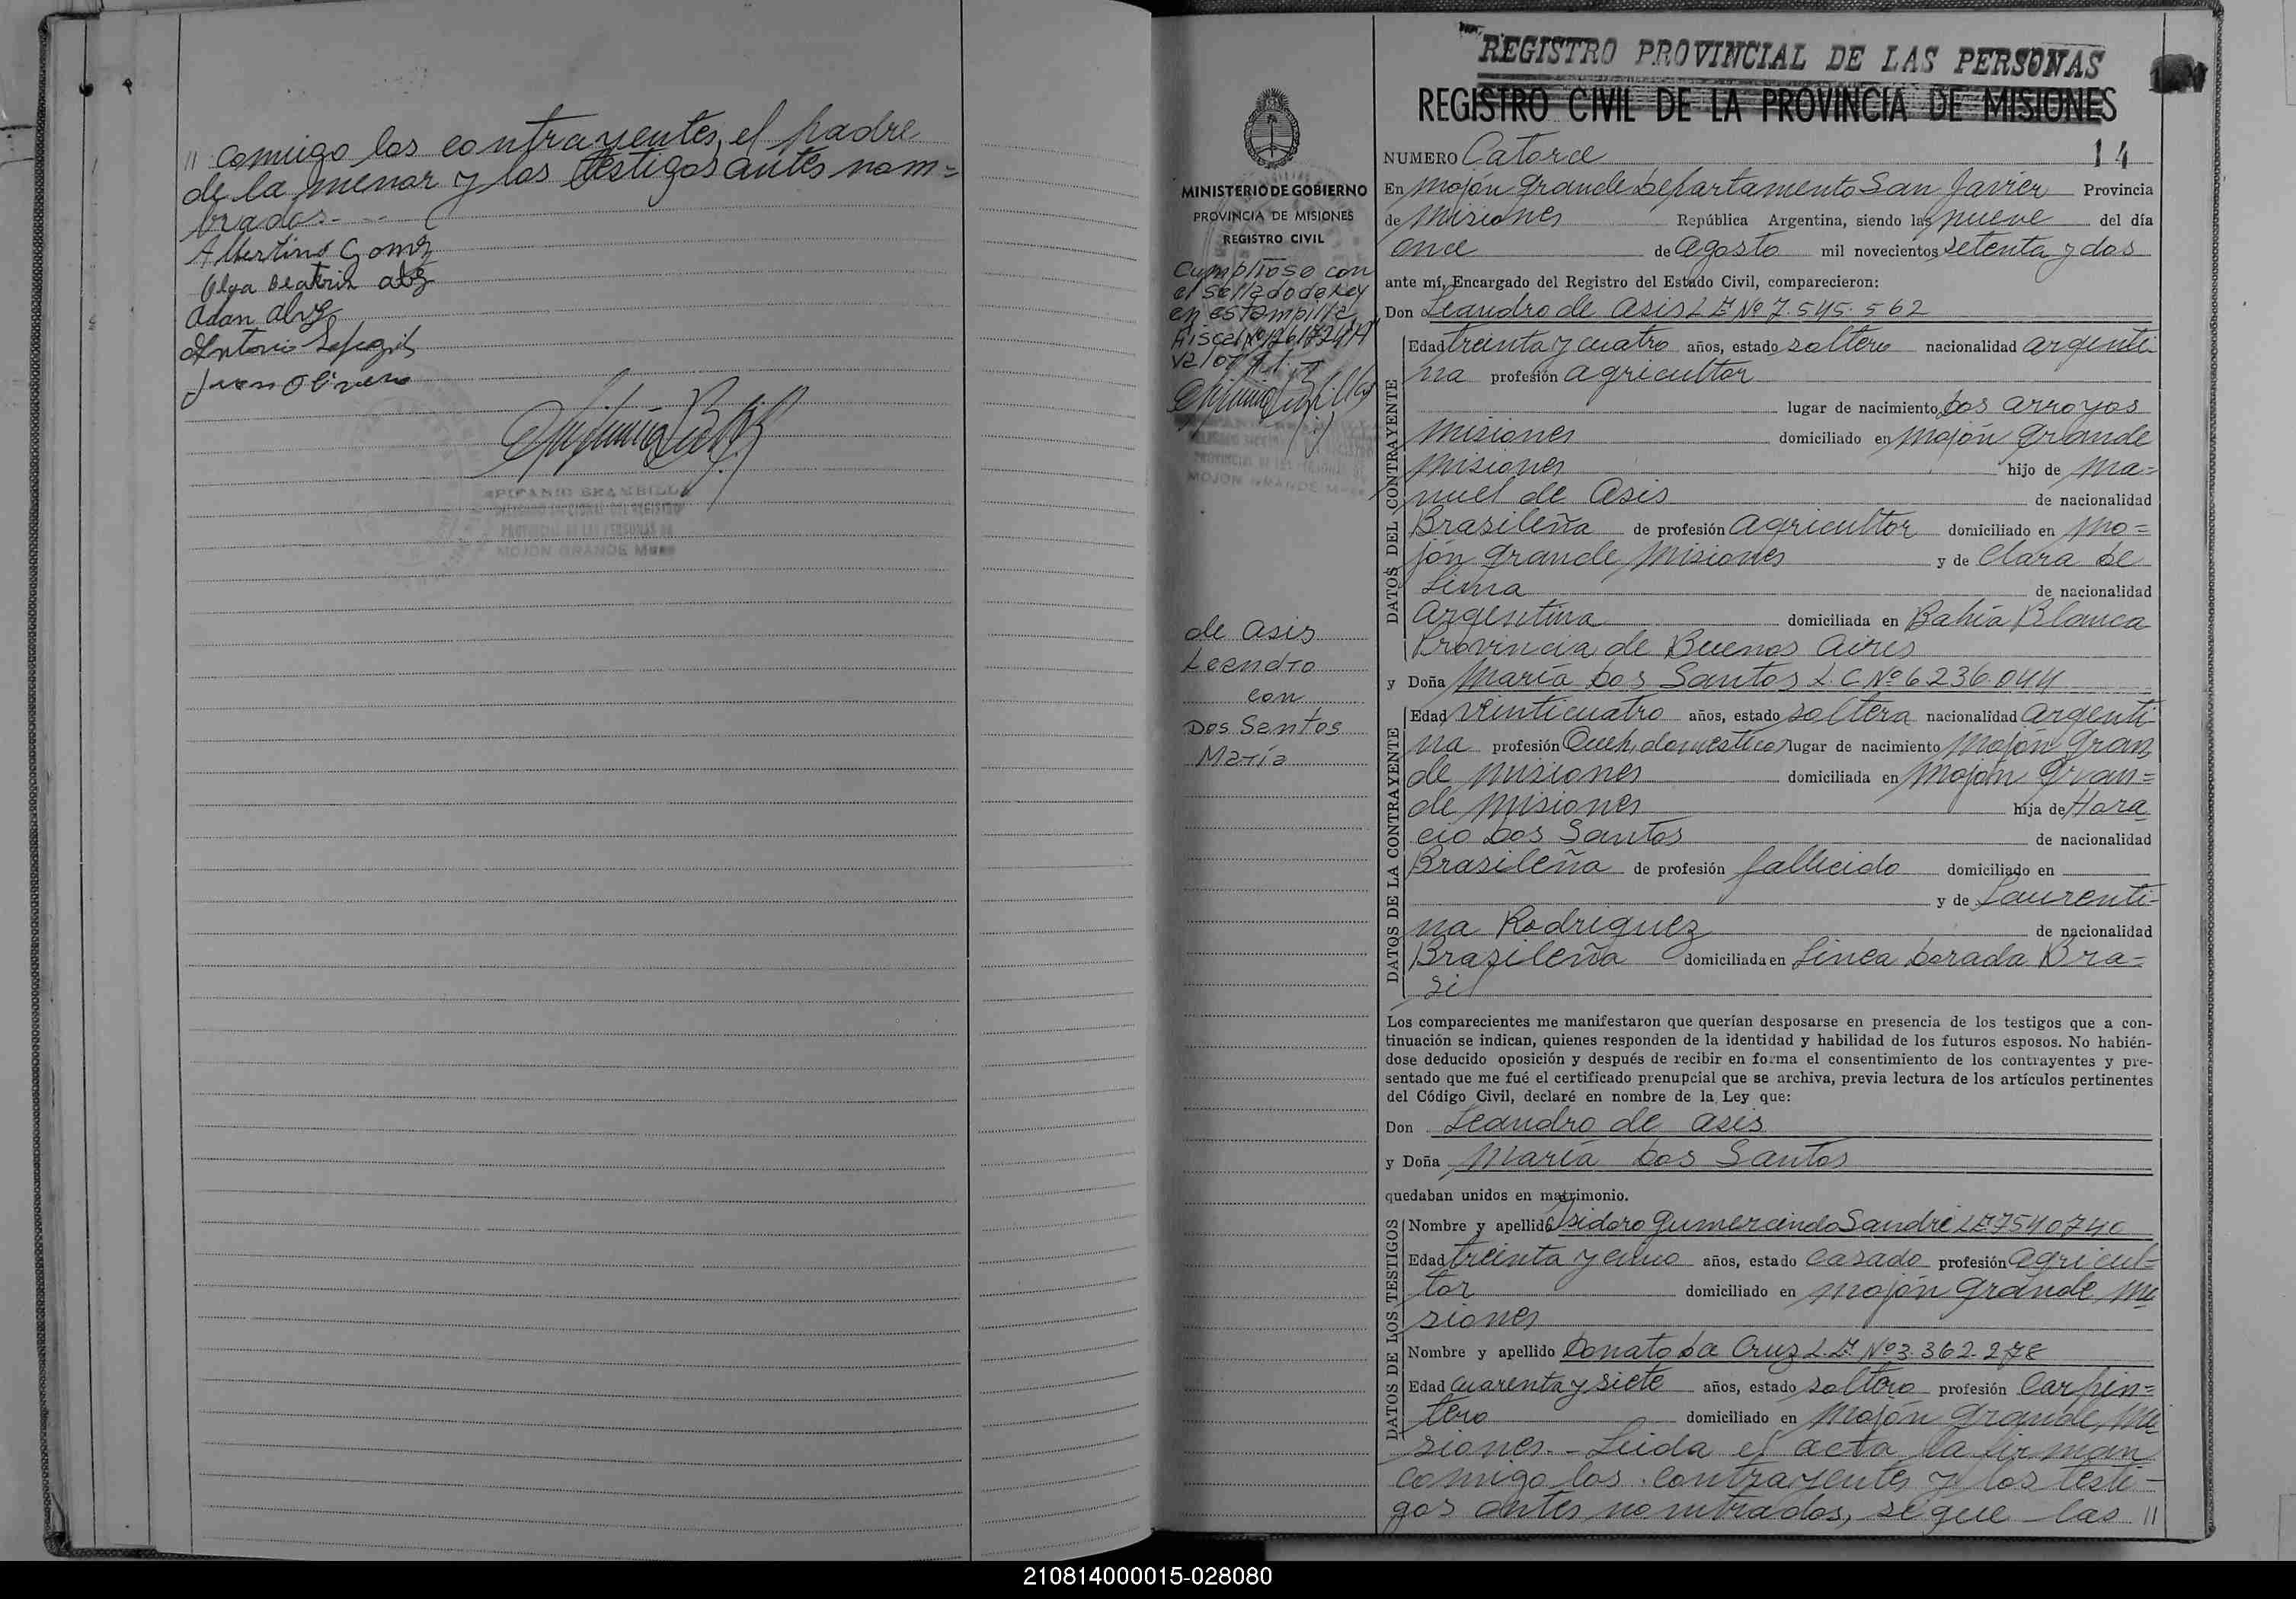 // Comigo los contrayentes, el padre
de la menor y los testigos antes nom=
brados.- - -
Albertino Gomez
Olga Beatriz
Adan
Antonio
Juan Olivera
EPIFANIO BRAMBILLA
DELEGADO SECCIONAL DEL REGISTRO
PROVINCIAL DE LAS PERSONAS DE
MOJON GRANDE Mnes
REGISTRO PROVINCIAL DE LAS PERSONAS
REGISTRO CIVIL DE LA PROVINCIA DE MISIONES
MINISTERIO DE GOBIERNO
PROVINCIA DE MISIONES
REGISTRO CIVIL
Cumplióse con
el sellado de Ley
en estampilla
fiscal Nº
valor
MOJON GRANDE
de Asis
Leandro
con
Dos Santos
María
NUMERO Catorce 14
En Mojón Grande Departamento San Javier Provincia
de Misiones República Argentina, siendo las nueve del día
once de Agosto mil novecientos setenta y dos
ante mí, Encargado del Registro del Estado Civil, comparecieron:
Don Leandro de Asis L E Nº 7.545.562
DATOS DEL CONTRAYENTE
Edad treinta y cuatro años, estado soltero nacionalidad argenti-
na profesión agricultor
lugar de nacimiento Dos Arroyos
Misiones domiciliado en Mojón Grande
Misiones hijo de Ma=
nuel de Asis de nacionalidad
Brasileña de profesión Agricultor domiciliado en Mo=
jón Grande Misiones y de Clara De
Lima de nacionalidad
Argentina domiciliada en Bahía Blanca
Provincia de Buenos Aires
y Doña María Dos Santos L C Nº 6.236.044
DATOS DE LA CONTRAYENTE
Edad veinticuatro años, estado soltera nacionalidad argenti-
na profesión Queh. domesticos lugar de nacimiento Mojón Gran
de Misiones domiciliada en Mojón Gran=
de Misiones hija de Hora
cio Dos Santos de nacionalidad
Brasileña de profesión fallecido domiciliado en
y de Laurenti-
na Rodriguez de nacionalidad
Brasileña domiciliada en Linea Dorada Bra=
sil
Los comparecientes me manifestaron que querían desposarse en presencia de los testigos que a con-
tinuación se indican, quienes responden de la identidad y habilidad de los futuros esposos. No habién-
dose deducido oposición y después de recibir en forma el consentimiento de los contrayentes y pre-
sentado que me fué el certificado prenupcial que se archiva, previa lectura de los artículos pertinentes
del Código Civil, declaré en nombre de la Ley que:
Don Leandro de Asis
y Doña María Dos Santos
quedaban unidos en matrimonio.
DATOS DE LOS TESTIGOS
Nombre y apellido Isidoro Gumercindo Sandri LE 7540740
Edad treinta y cinco años, estado Casado profesión agricul-
tor domiciliado en Mojón Grande, Mi
siones
Nombre y apellido Donato Da Cruz L.E. Nº 3.362.278
Edad cuarenta y siete años, estado soltero profesión Carpin=
tero domiciliado en Mojón Grande, Mi
siones.- Leida el acta la firman
comigo los contrayentes y los testi-
gos antes nombrados, sigue las //
210814000015-028080